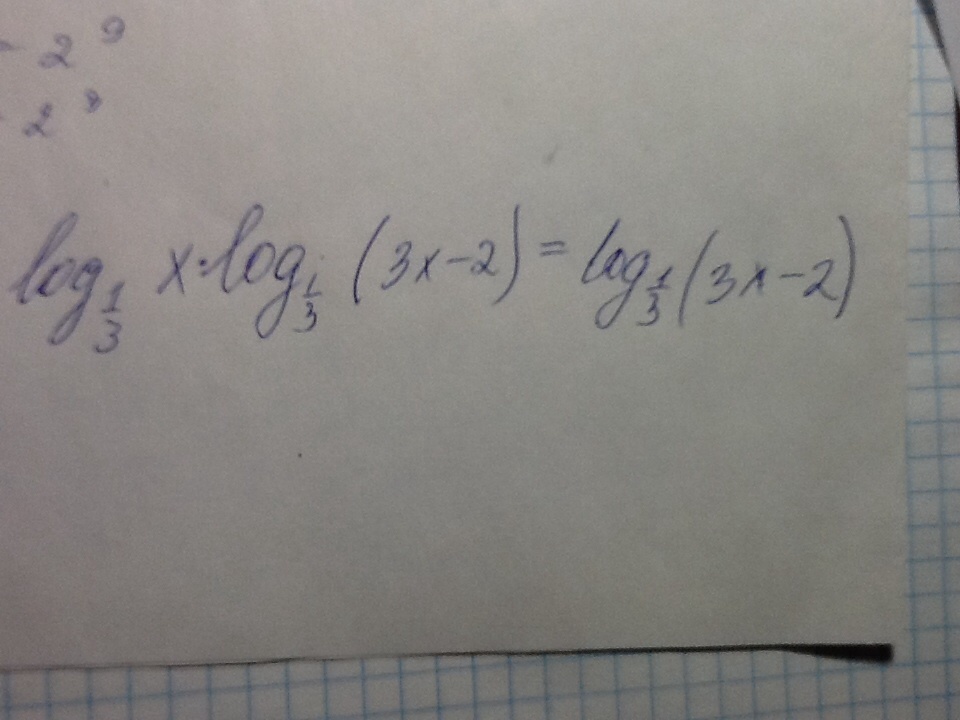 2⁹
2⁸
log_{1/3} x·log_{1/3} (3x-2) = log_{1/3} (3x-2)